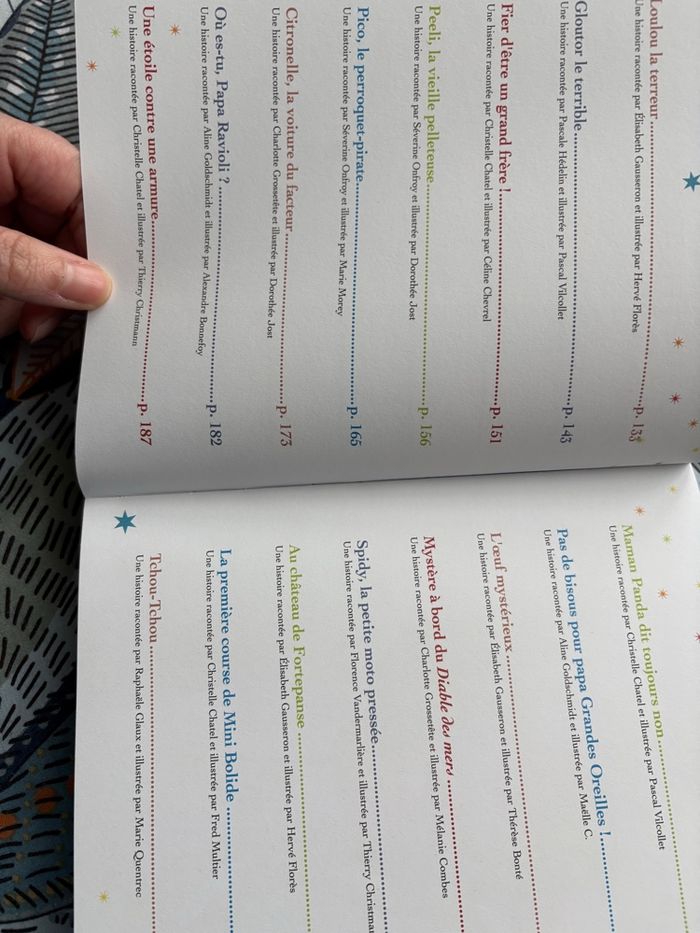 Loulou la terreur..........p. 133
Une histoire racontée par Élisabeth Gausseron et illustrée par Hervé Florès
Gloutor le terrible..........p. 143
Une histoire racontée par Pascale Hédelin et illustrée par Pascal Vilcollet
Fier d'être un grand frère !..........p. 151
Une histoire racontée par Christelle Chatel et illustrée par Céline Chevrel
Peeli, la vieille pelleteuse..........p. 156
Une histoire racontée par Séverine Onfroy et illustrée par Dorothée Jost
Pico, le perroquet-pirate..........p. 165
Une histoire racontée par Séverine Onfroy et illustrée par Marie Morey
Citronelle, la voiture du facteur..........p. 173
Une histoire racontée par Charlotte Grossetête et illustrée par Dorothée Jost
Où es-tu, Papa Ravioli ?..........p. 182
Une histoire racontée par Aline Goldschmidt et illustrée par Alexandre Bonnefoy
Une étoile contre une armure..........p. 187
Une histoire racontée par Christelle Chatel et illustrée par Thierry Christmann
Maman Panda dit toujours non..........
Une histoire racontée par Christelle Chatel et illustrée par Pascal Vilcollet
Pas de bisous pour papa Grandes Oreilles !..........
Une histoire racontée par Aline Goldschmidt et illustrée par Maëlle C.
L'œuf mystérieux..........
Une histoire racontée par Élisabeth Gausseron et illustrée par Thérèse Bonté
Mystère à bord du Diable des mers..........
Une histoire racontée par Charlotte Grossetête et illustrée par Mélanie Combes
Spidy, la petite moto pressée..........
Une histoire racontée par Florence Vandermarlière et illustrée par Thierry Christman
Au château de Fortepanse..........
Une histoire racontée par Élisabeth Gausseron et illustrée par Hervé Florès
La première course de Mini Bolide..........
Une histoire racontée par Christelle Chatel et illustrée par Fred Multier
Tchou-Tchou..........
Une histoire racontée par Raphaële Glaux et illustrée par Marie Quentrec